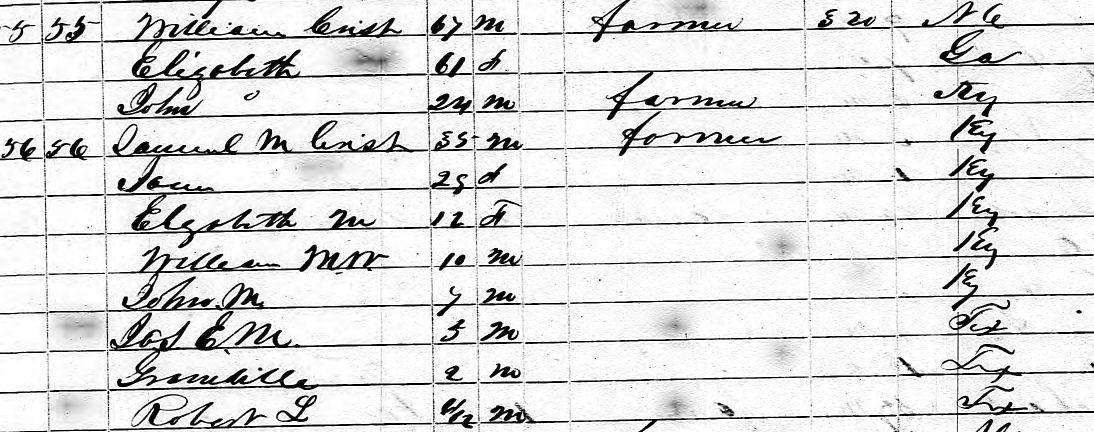 55 William Crish 67 M farmer 320 N C
Elizabeth 61 f Ga
John 24 M farmer Ky
56 56 Samuel M Crish 35 M farmer Ky
f Ky
Elizabeth M 12 F Ky
William M.W. 10 M Ky
John. M. 7 M Ky
Jas E. M. 5 M Tex
2 M Tex
Robert L 6/12 M Tex